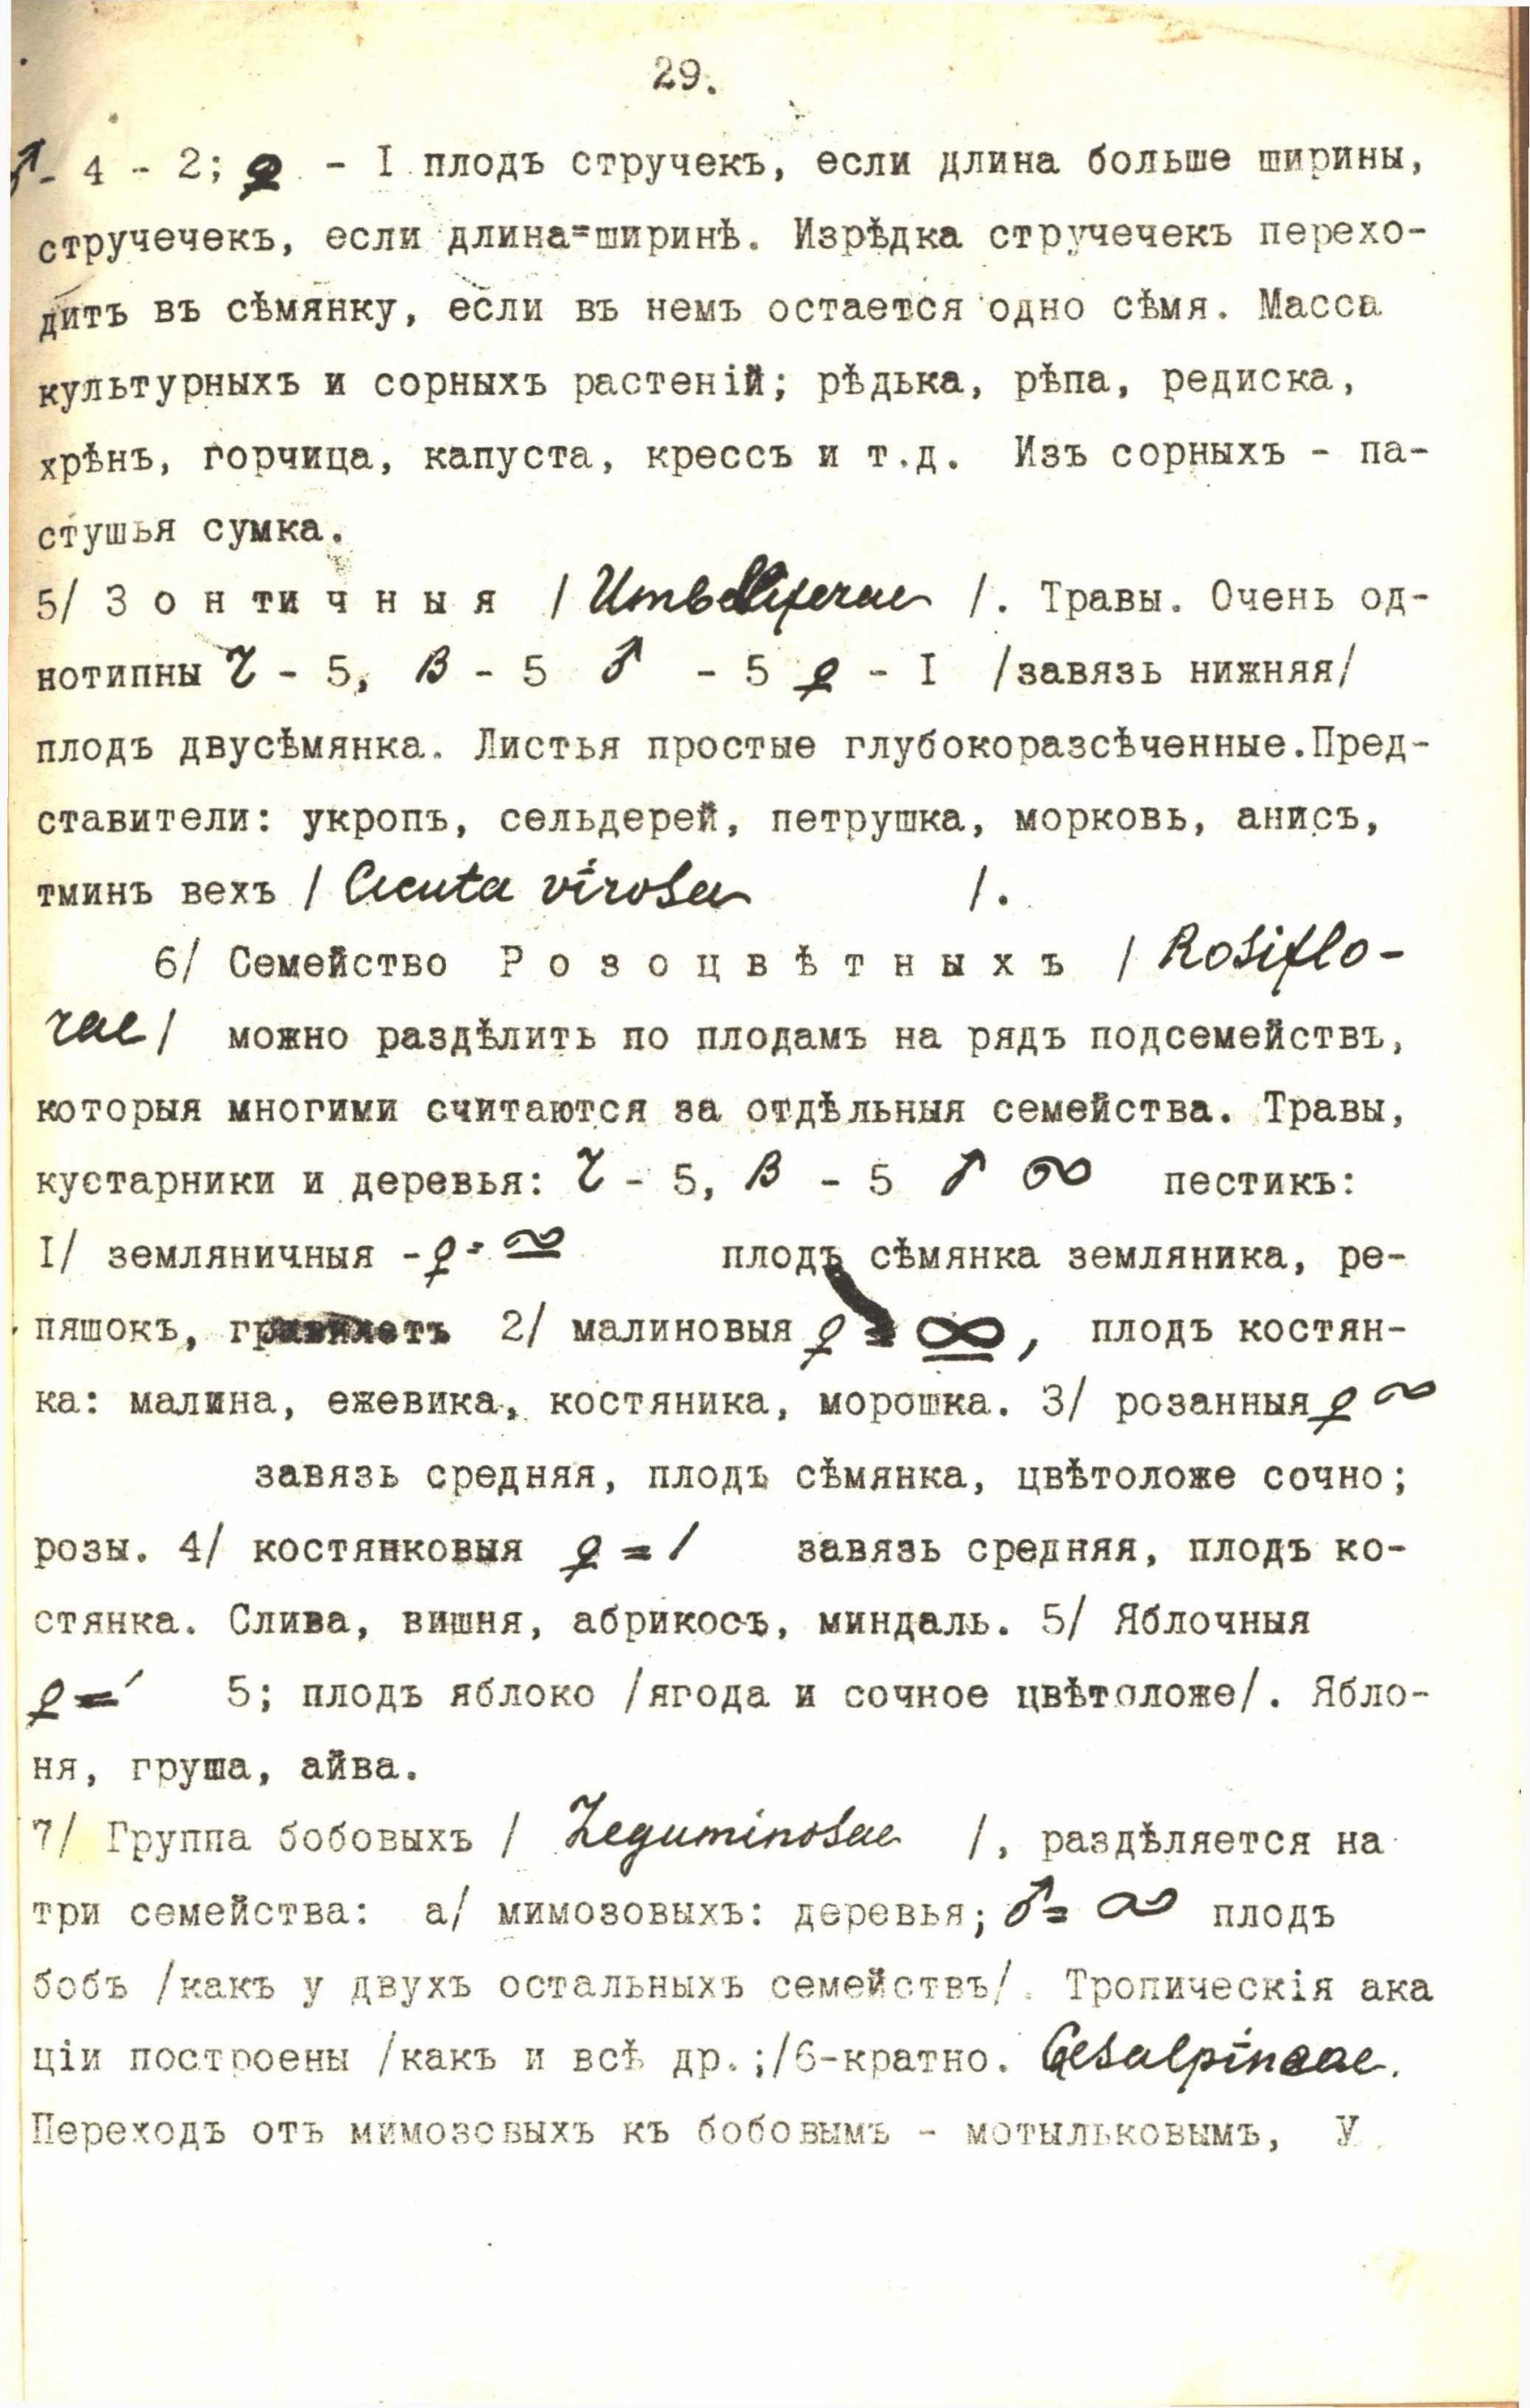 29.
♂- 4 - 2; ♀ - I плодъ стручекъ, если длина больше ширины,
стручечекъ, если длина=ширинѣ. Изрѣдка стручечекъ перехо-
дитъ въ сѣмянку, если въ немъ остается одно сѣмя. Масса
культурныхъ и сорныхъ растеній; рѣдька, рѣпа, редиска,
хрѣнъ, горчица, капуста, крессъ и т.д. Изъ сорныхъ - па-
стушья сумка.
5/ З о н т и ч н ы я / Umbelliferae /. Травы. Очень од-
нотипны Ч - 5, В - 5 ♂ - 5 ♀ - I /завязь нижняя/
плодъ двусѣмянка. Листья простые глубокоразсѣченные.Пред-
ставители: укропъ, сельдерей, петрушка, морковь, анисъ,
тминъ вехъ / Cicuta virosa /.
6/ Семейство Р о з о ц в ѣ т н ы х ъ / Rosiflo-
rae / можно раздѣлить по плодамъ на рядъ подсемействъ,
которыя многими считаются за отдѣльныя семейства. Травы,
кустарники и деревья: Ч - 5, В - 5 ♂ ∞ пестикъ:
I/ земляничныя - ♀ = ∞ плодъ сѣмянка земляника, ре-
пяшокъ, гравилетъ 2/ малиновыя ♀ = ∞, плодъ костян-
ка: малина, ежевика, костяника, морошка. 3/ розанныя ♀ ∞
завязь средняя, плодъ сѣмянка, цвѣтоложе сочно;
розы. 4/ костянковыя ♀ = 1 завязь средняя, плодъ ко-
стянка. Слива, вишня, абрикосъ, миндаль. 5/ Яблочныя
♀ = 5; плодъ яблоко /ягода и сочное цвѣтоложе/. Ябло-
ня, груша, айва.
7/ Группа бобовыхъ / Leguminosae /, раздѣляется на
три семейства: а/ мимозовыхъ: деревья; ♂ = ∞ плодъ
бобъ /какъ у двухъ остальныхъ семействъ/. Тропическія ака
ціи построены /какъ и всѣ др.;/6-кратно. Cesalpineae.
Переходъ отъ мимозовыхъ къ бобовымъ - мотыльковымъ, У